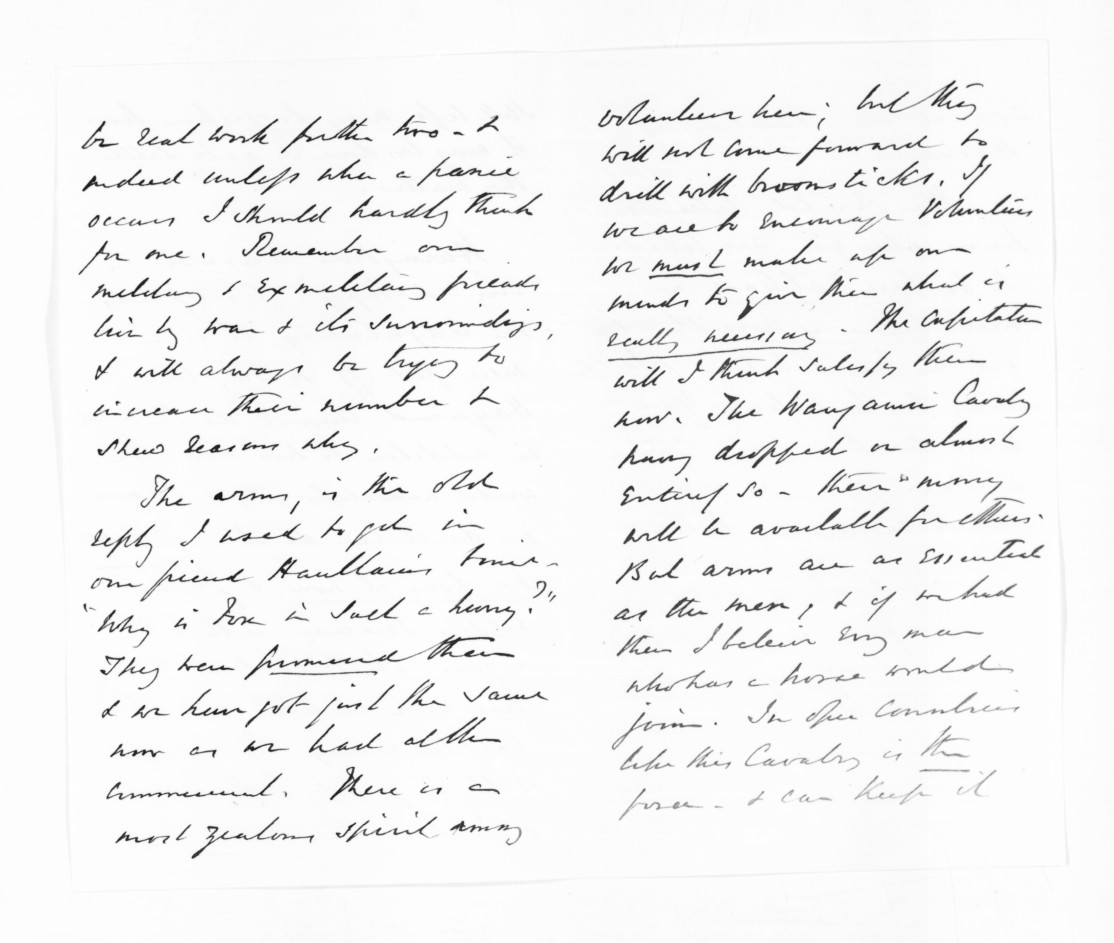 be real work for the two - &
indeed unless when a panic
occurs I should hardly think
for one. Remember our
military & Ex military friends
live by war & its surroundings,
& will always be trying to
increase their number &
shew reasons why.
The arms, is the old
reply I used to get in
our friend Haultain's time -
"Why is Fox in such a hurry?"
They were promised them
& we have got just the same
now as we had at the
commencement. There is a
most zealous spirit among
volunteers here; but they
will not come forward to
drill with broomsticks. If
we are to encourage Volunteers
we must make up our
minds to give them what is
really necessary. The capitation
will I think satisfy them
now. The Wanganui Cavalry
having dropped or almost
entirely so - their money
will be available for others.
But arms are as essential
as the men, & if we had
them I beleive every man
who has a horse would
join. In open countries
like this Cavalry is the
force - & can keep it